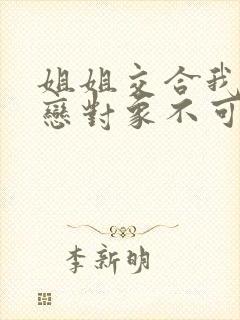 姐姐交合我
戀對象不可
李新明